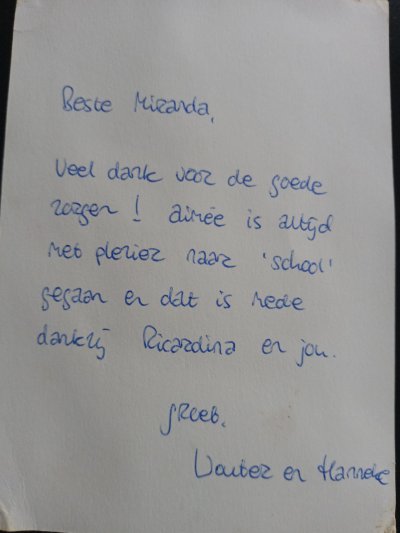 Beste Miranda,
Veel dank voor de goede
zorgen! Aimée is altijd
met plezier naar 'school'
gegaan en dat is mede
dankzij Ricardina en jou.
groet,
Wouter en Hanneke